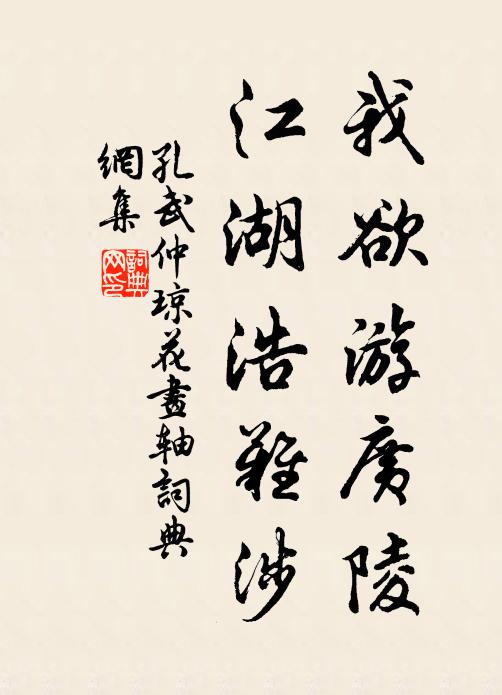 我欲游廣陵
江湖浩難涉
孔武仲琼花畫軸詞典
網集
詞典
网印